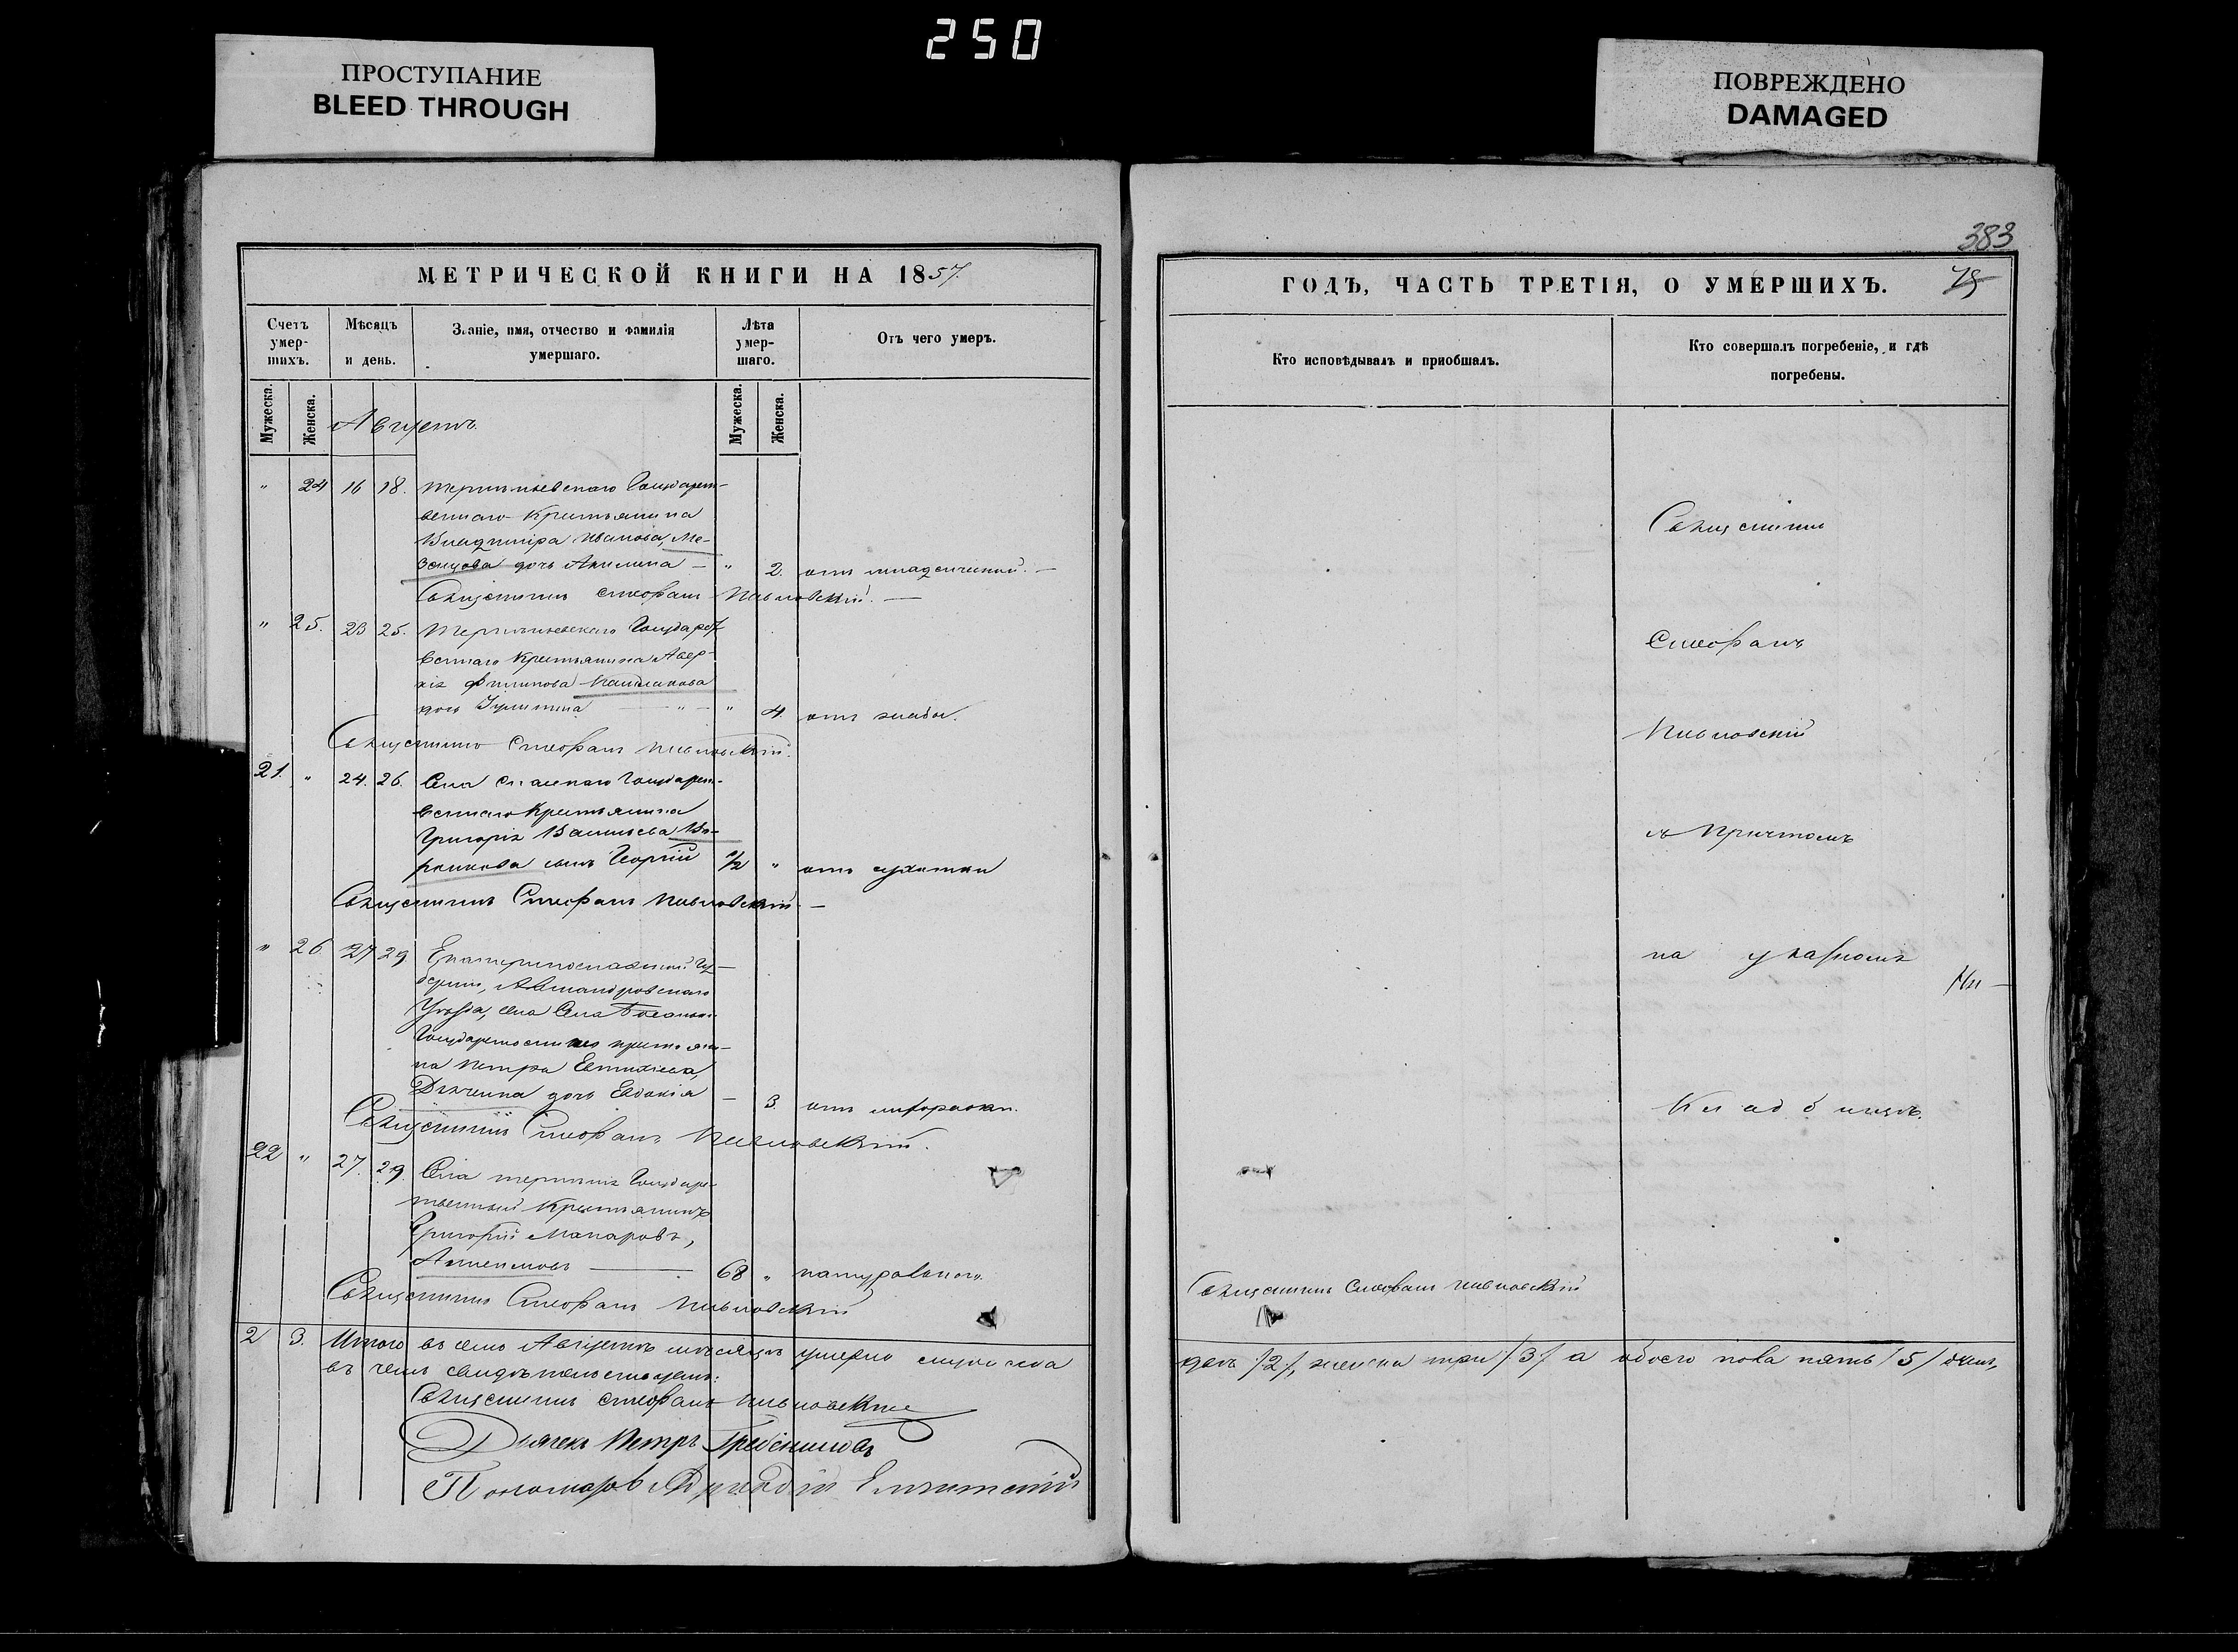 250
ПРОСТУПАНИЕ
BLEED THROUGH
ПОВРЕЖДЕНО
DAMAGED
383
75
МЕТРИЧЕСКОЙ КНИГИ НА 1857.
Счетъ умер-шихъ.
Мѣсяцъ и день.
Званіе, имя, отчество и фамилія умершаго.
Лѣта умер-шаго.
Отъ чего умеръ.
Мужеска.
Женска.
Мужеска.
Женска.
Августъ.
" 24 16 18. Терпеньевскаго Государст-
веннаго Крестьянина
Владиміра Иванова, Ме-
зенцова дочь Акилина — " 2. отъ младенческой. —
Священникъ Стефанъ Павловскій. —
" 25. 23 25. Государст-
веннаго Крестьянина Авер-
кія Филипова
дочь Іулитта — " — " 4. отъ жабы.
Священникъ Стефанъ Павловскій.
21. " 24. 26. Села Государст-
веннаго Крестьянина
Григорія Васильева Во-
ронкова сынъ Георгій 1/2 " отъ сухотки
Священникъ Стефанъ Павловскій —
" 26. 27 29 Екатеринославской Гу-
берніи, Александровскаго
Уѣзда, села
Государственнаго крестьяни-
на Петра Евтихіева,
дочь Евдокія — 3. отъ лихорадки.
Священникъ Стефанъ Павловскій.
22 " 27. 29. Села Терпенія Государс-
твенный Крестьянинъ
Григорій Макаровъ,
68 " натуральною.
Священникъ Стефанъ Павловскій
2 3. Итого въ семъ Августѣ мѣсяцѣ умерло мужеска
въ чемъ свидѣтельствуемъ:
Священникъ Стефанъ Павловскій
Дьячекъ Петръ Гребенниковъ
Пономарь
ГОДЪ, ЧАСТЬ ТРЕТІЯ, О УМЕРШИХЪ.
Кто исповѣдывалъ и пріобщалъ.
Кто совершалъ погребеніе, и гдѣ погребены.
Священникъ
Стефанъ
Павловскій
съ Причтомъ
на указномъ
Кладбищѣ.
Священникъ Стефанъ Павловскій
два /2/, женска три /3/ а обоего пола пять /5/ душъ,